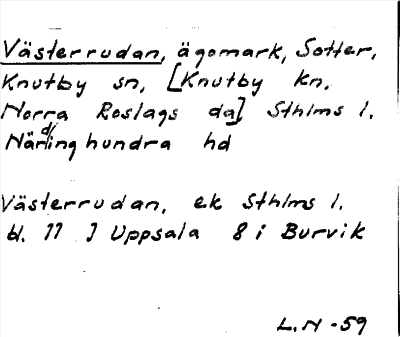 Västerrudan, ägomark, Sotter,
Knutby sn, [Knutby kn,
Norra Roslags da] Sthlms l.
Närdinghundra hd
Västerrudan, ek Sthlms l.
bl. 77 J Uppsala 8 i Burvik
L.N -59